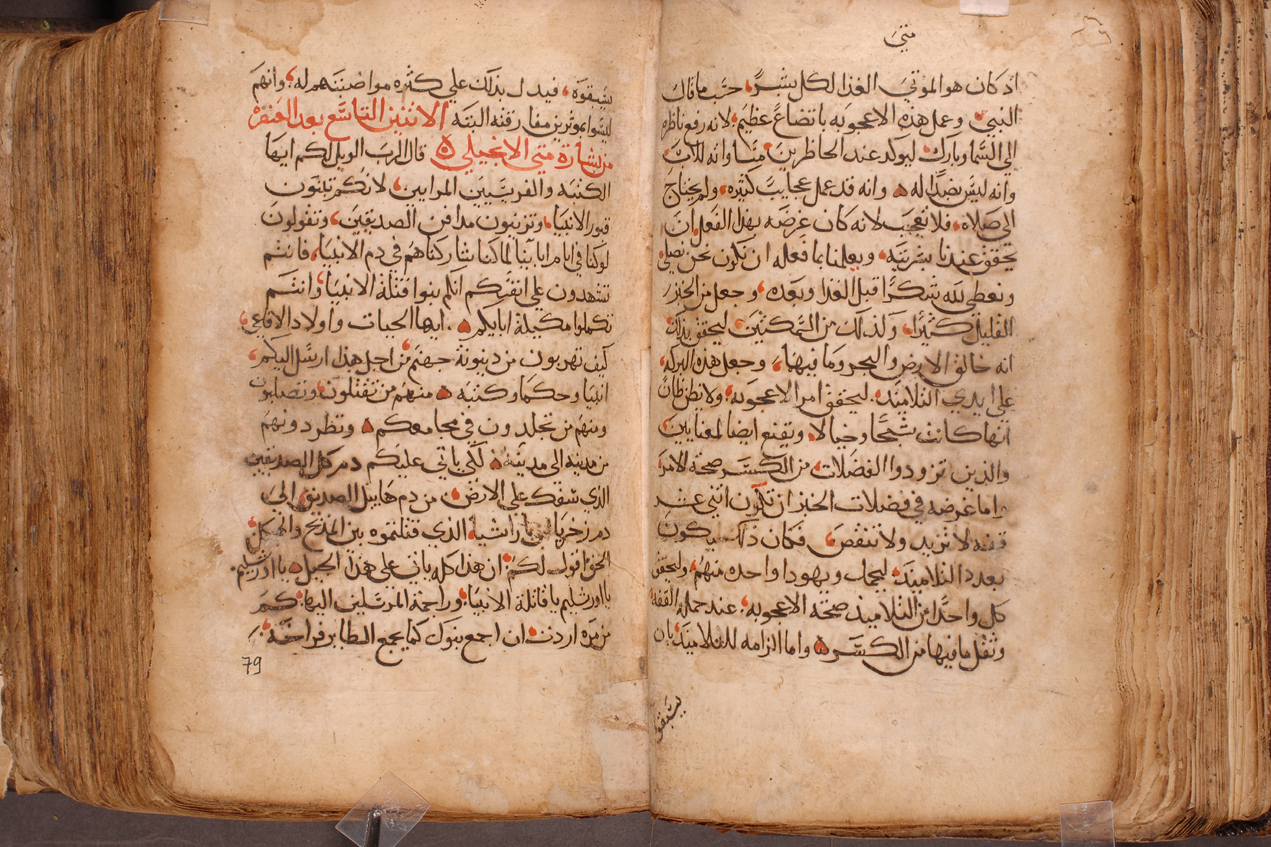 متى
اذ كان هو الموتي الغذا لكل بشر، حسب ما قال
النبي، وعمل هذه الاعجوبه باتضاع عظيم، لانه رفع ناظره
الى السما وبارك، ليوكد عند الحاظرين، منا وانه للاب
وانه ليس بضدًا له، وانه قد عمل عجايب كثيره، ولم يحتاج
الى صلاه، فلا تعجب لانه كان غرضه بهذا الفعل ان
يحقق عندنا بشريته، ويعلمنا بما فعله ان نكون نحن نصلي
ونعطي لله شكرًا قبل الغدا وبعده، وجعل من الخبز
القليل كثيرًا، وكذلك من السمكتين، ليحقق بذلك
انه خالق الارض والبحر وما فيهما، وجعل هذه البركه
على ايدي التلاميذ، ليحقق امر الاعجوبه، ولا يظن ظان
انها كانت شبحًا وخيالا، ويقنع ايضا المعاينين
والذين تزودوا الفضلات، من الكسر صحة الامر
واما غرضه في فضلات الخبز ان تكون اثنى عشر
قفه لا تزيد ولا تنقص، فكان ذلك ليكون
بعدد التلاميذ، ليخجل ويهودا واحده منهم، وليحقق
كل واحدًا من التلاميذ صحة الاعجوبه، عند حمله القفه
وثقل ما فيها من الكسر، واما الزامه للتلاميذ، بان
يسبقو
يسبقوه، فيدل بذلك على كثره مواضبتهم له، وانهم
ليسوا بموثرين مفارقته البته الاثنين التاسع بعد العنصره
من بشارة متى الانجيلي، قال الرب الويل لكم ايها
الكتبه والفريسيين المرايين، لانكم تبنون
قبور الانبيا، وتزينون مدافن الصديقين، وتقولون
لو كنا في ايام ابايينا لما كنا شاركناهم في دم الانبيا، فانتم
تشهدون على انفسكم انكم بنوا قتلة الانبيا، وانتم
تكملوا مكيلة ابايكم، ايها الحيات واولاد الافاعي،
كيف تهربون من دينونة جهنم، من اجل هذا ارسل اليكم
انبيا وحكما وكتبه، منهم من تقتلون، وتصلبون
ومنهم من تجلدون في مجامعكم، وتطردونهم
من مدينه الى مدينه، لكي ياتي عليكم دم كل الصديقين
الذي سفك على الارض، من دم هابيل الصديق الى
دم زخريا ابن براشيا، الذي قتلتموه بين المذبح والهيكل،
الحق اقول لكم، ان هذا كله يات على هذا الجيل، يا اورشليم
يا اورشليم يا قاتلة الانبيا، وراجمة المرسلين اليها، كم
من مره اردت، ان اجمع بنوك كما يجمع الطاير فراخه،
79